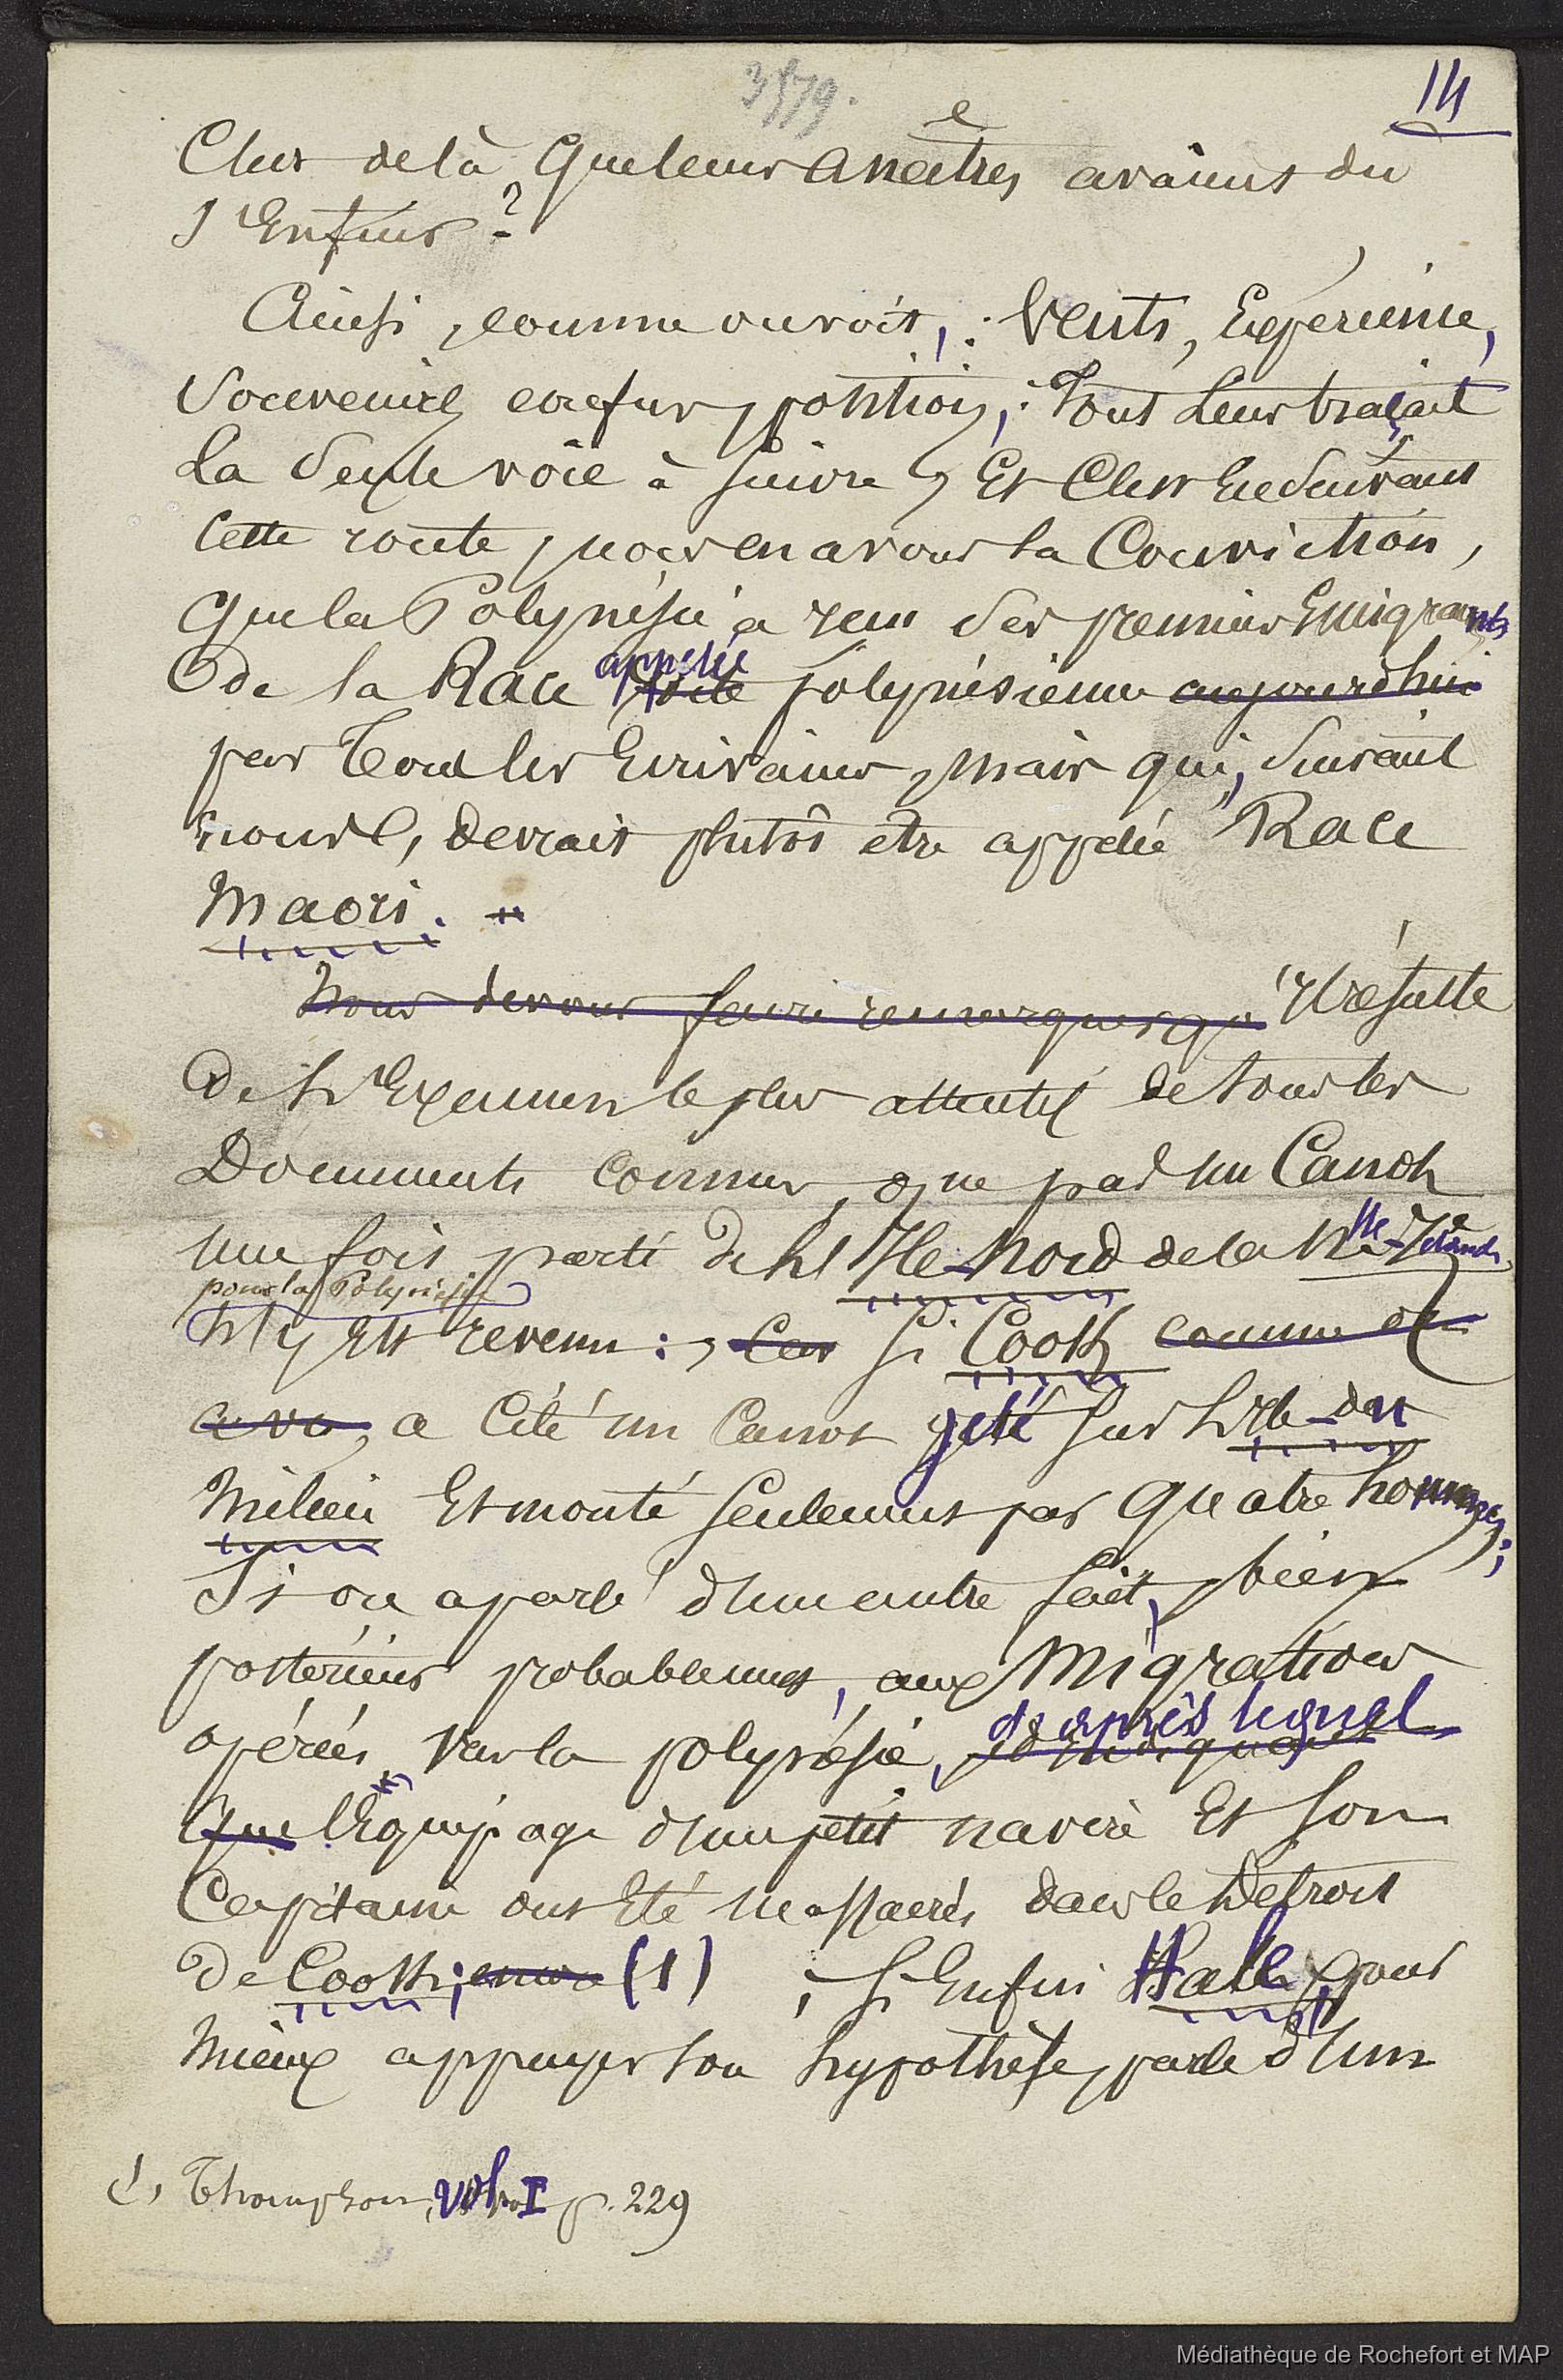 3579.
14
C'est delà que leurs ancêtres avaient du
s'enfuir ?
Ainsi, comme on voit, : Vents, Expérience,
Souvenirs, position, : Tout leur traçait
la seule voie à suivre, Et C'est En suivant
cette route, nous en avons la Conviction,
que la Polynésie a reçu ses premiers Emigrants
de la Race appelée polynésienne aujourd'hui
par Tous les Ecrivains, mais qui, suivant
nous, devrait plutôt être appelée Race
Maori. "
Nous devons faire remarquer qu' Il résulte
de l'Examen le plus attentif de tous les
Documents connus, que pas un Canot
une fois parti de l'Ile-Nord de la Nlle-Zélande
pour la Polynésie
n'y Est revenu : , Car si Cook comme on
a vu, a cité un Canot jeté sur l'Ile-du
Milieu Et monté seulement par quatre hommes;
Si on a parlé d'une autre fait, bien
postérieur probablement, aux Migrations
opérées vers la polynésie, d'après lequel
que l'Equipage d'un petit navire Et son
Capitaine ont Eté massacrés dans le Détroit
de Cook; (1) ; si Enfin Hale, pour
mieux appuyer son hypothèse, parle d'un
(1) Thompson, vol. I p. 229
Médiathèque de Rochefort et MAP